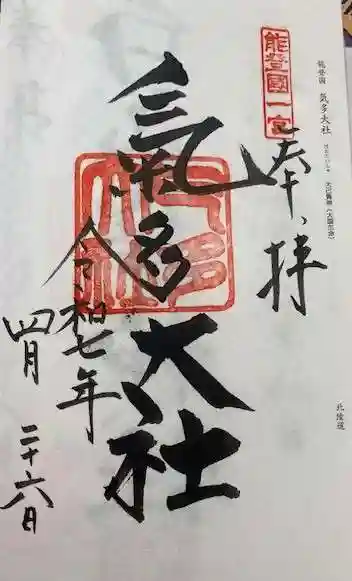 能登國 気多大社
大己貴命(大国主命)
北陸道
能登國一宮
奉拝
氣多大社
令和七年
四月二十六日